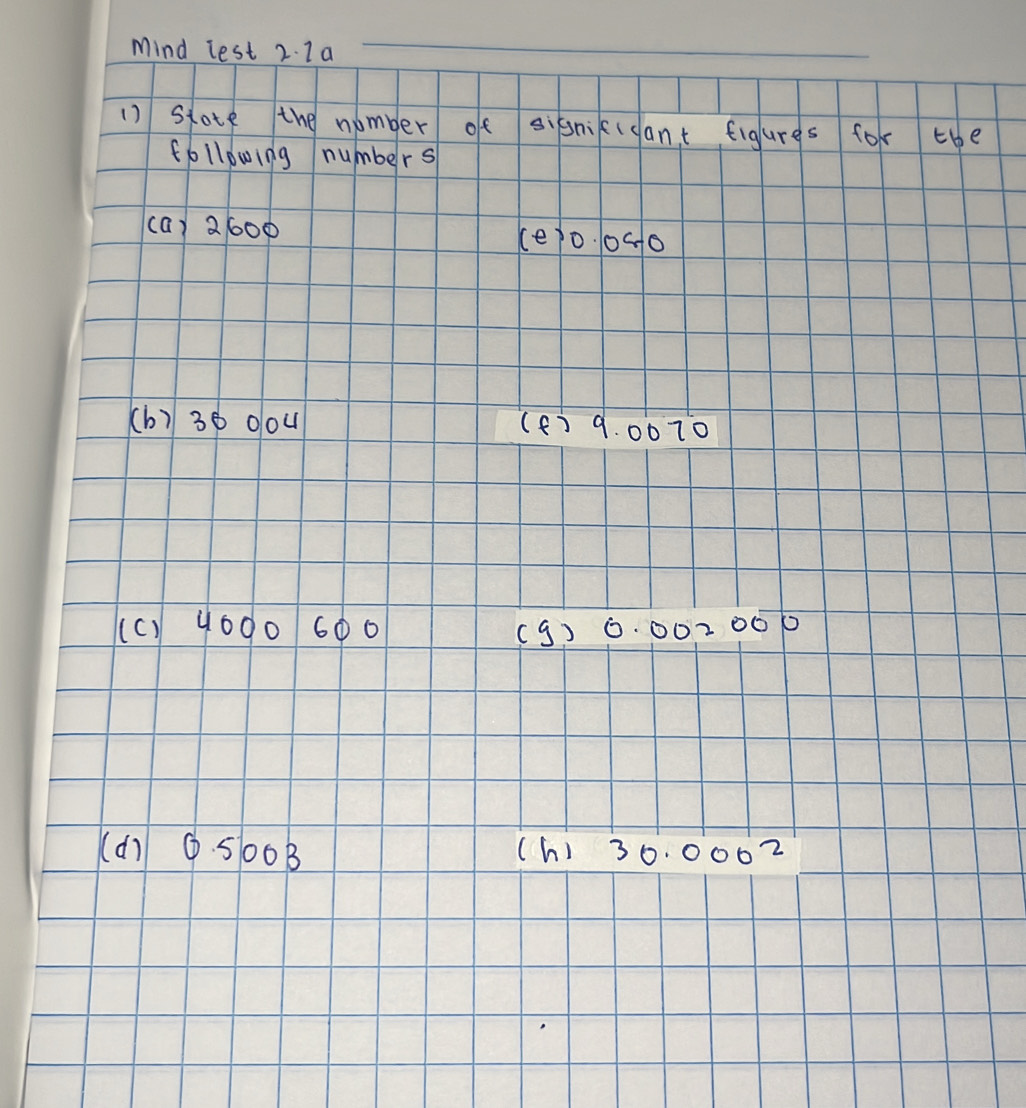 Mind Test 2.1a
1) State the number of significant figures for the
following numbers
(a) 2600
(e) 0.040
(b) 30 004
(f) 9.0070
(c) 4000 600
(g) 0.002000
(d) 0.5003
(h) 30.0002